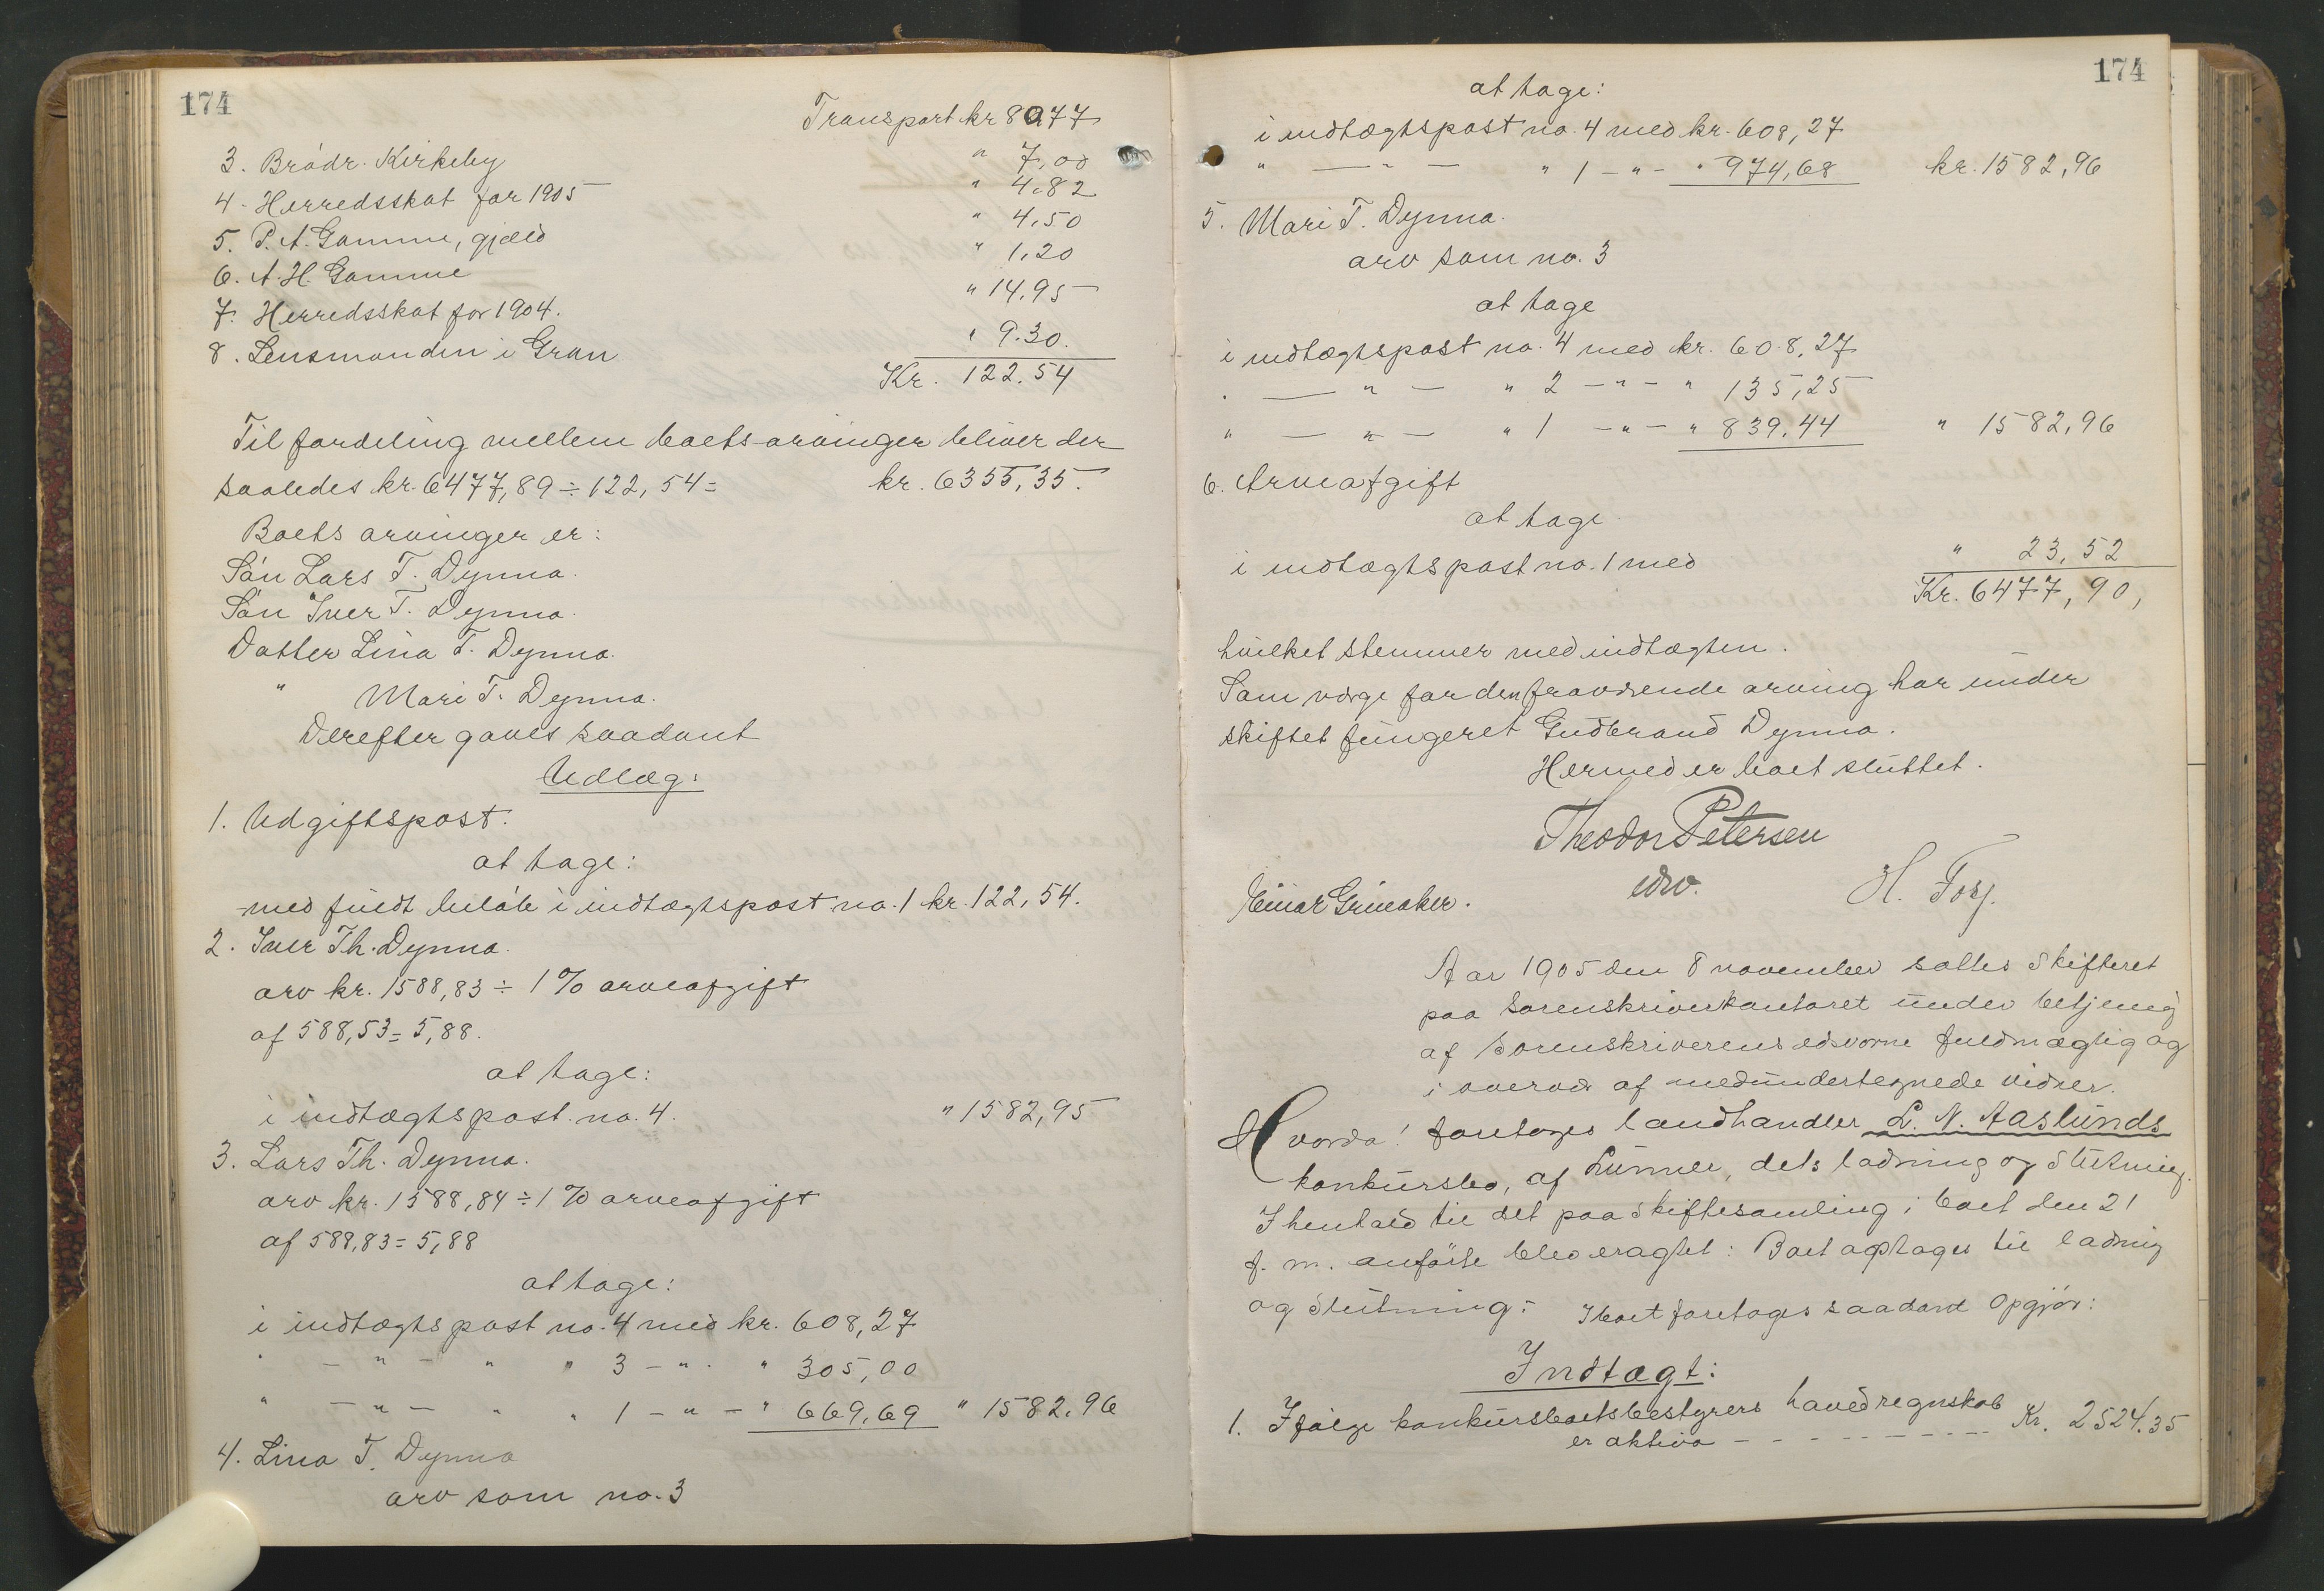 174
Transport kr 80,77
3. Brødr. Kirkeby " 7,00
4. Herredsskat for 1905 " 4,82
5. P. A. Gamme, gjæld " 4,50
6. A. H. Gamme " 1,20
7. Herredsskat for 1904. " 14,95
8. Lensmanden i Gran " 9.30.
Kr. 122.54
Til fordeling mellem boets arvinger bliver der
saaledes kr. 6477,89 ÷ 122,54 = kr. 6355,35.
Boets arvinger er:
Søn Lars T. Dynna.
Søn Iver T. Dynna.
Datter Lina T. Dynna.
" Mari T. Dynna.
Derefter gaves saadant
Udlæg:
1. Udgiftspost.
at tage:
med fuldt beløb i indtægtspost no. 1 kr. 122,54.
2. Iver Th. Dynna.
arv kr. 1588,83 ÷ 1 % arveafgift
af 588,53 = 5,88.
at tage:
i indtægtspost no. 4. " 1582,95
3. Lars Th. Dynna.
arv kr. 1588,84 ÷ 1 % arveafgift
af 588,83 = 5,88
at tage:
i indtægtspost no. 4 med kr. 608,27
" — " — " " 3 — " " 305,00
" — " — " " 1 — " — " 669,69 " 1582,96
4. Lina T. Dynna
arv som no. 3
174
at tage:
i indtægtspost no. 4 med kr. 608,27
" — " — " 1 — " — " 974,68 kr. 1582,96
5. Mari T. Dynna.
arv som no. 3
at tage
i indtægtspost no. 4 med kr. 608,27
" — " — " 2 — " — " 135,25
" — " — " 1 — " — " 839.44 " 1582,96
6. Arveafgift
at tage
i indtægtspost no. 1 med " 23,52
Kr. 6477,90,
hvilket stemmer med indtægten.
Som værge for den fraværende arving har under
skiftet fungeret Gudbrand Dynna.
Hermed er boet sluttet.
Theodor Petersen
edsv.
Einar Grinaker. H. Forf.
Aar 1905 den 8 november sattes Skifteret
paa Sorenskriverkontoret under betjening
af Sorenskriverens edsvorne fuldmægtig og
i overvær af medundertegnede vidner.
Hvorda! foretoges landhandler L. N. Aaslunds
konkursbo, af Lunner, dets ladning og Slutning.
I henhold til det paa Skiftesamling i boet den 21
f. m. anførte blev eragtet: Boet optages til ladning
og Slutning. I boet foretoges saadant Opgjør:
Indtægt:
1. Ifølge konkursboets bestyrers hovedregnskab
er aktiva - - - - - - - - Kr. 2524.35